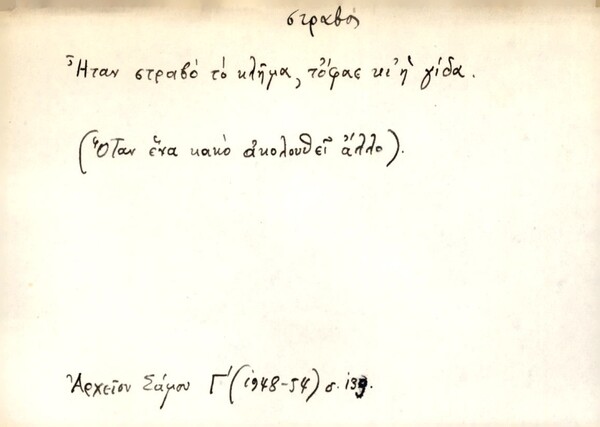 στραβός
Ἦταν στραβό τό κλῆμα, τὄφαε κι' ἡ γίδα.
(Ὅταν ἕνα κακό ἀκολουθεῖ ἄλλο).
Ἀρχεῖον Σάμου Γ' (1948-54) σ. 139.